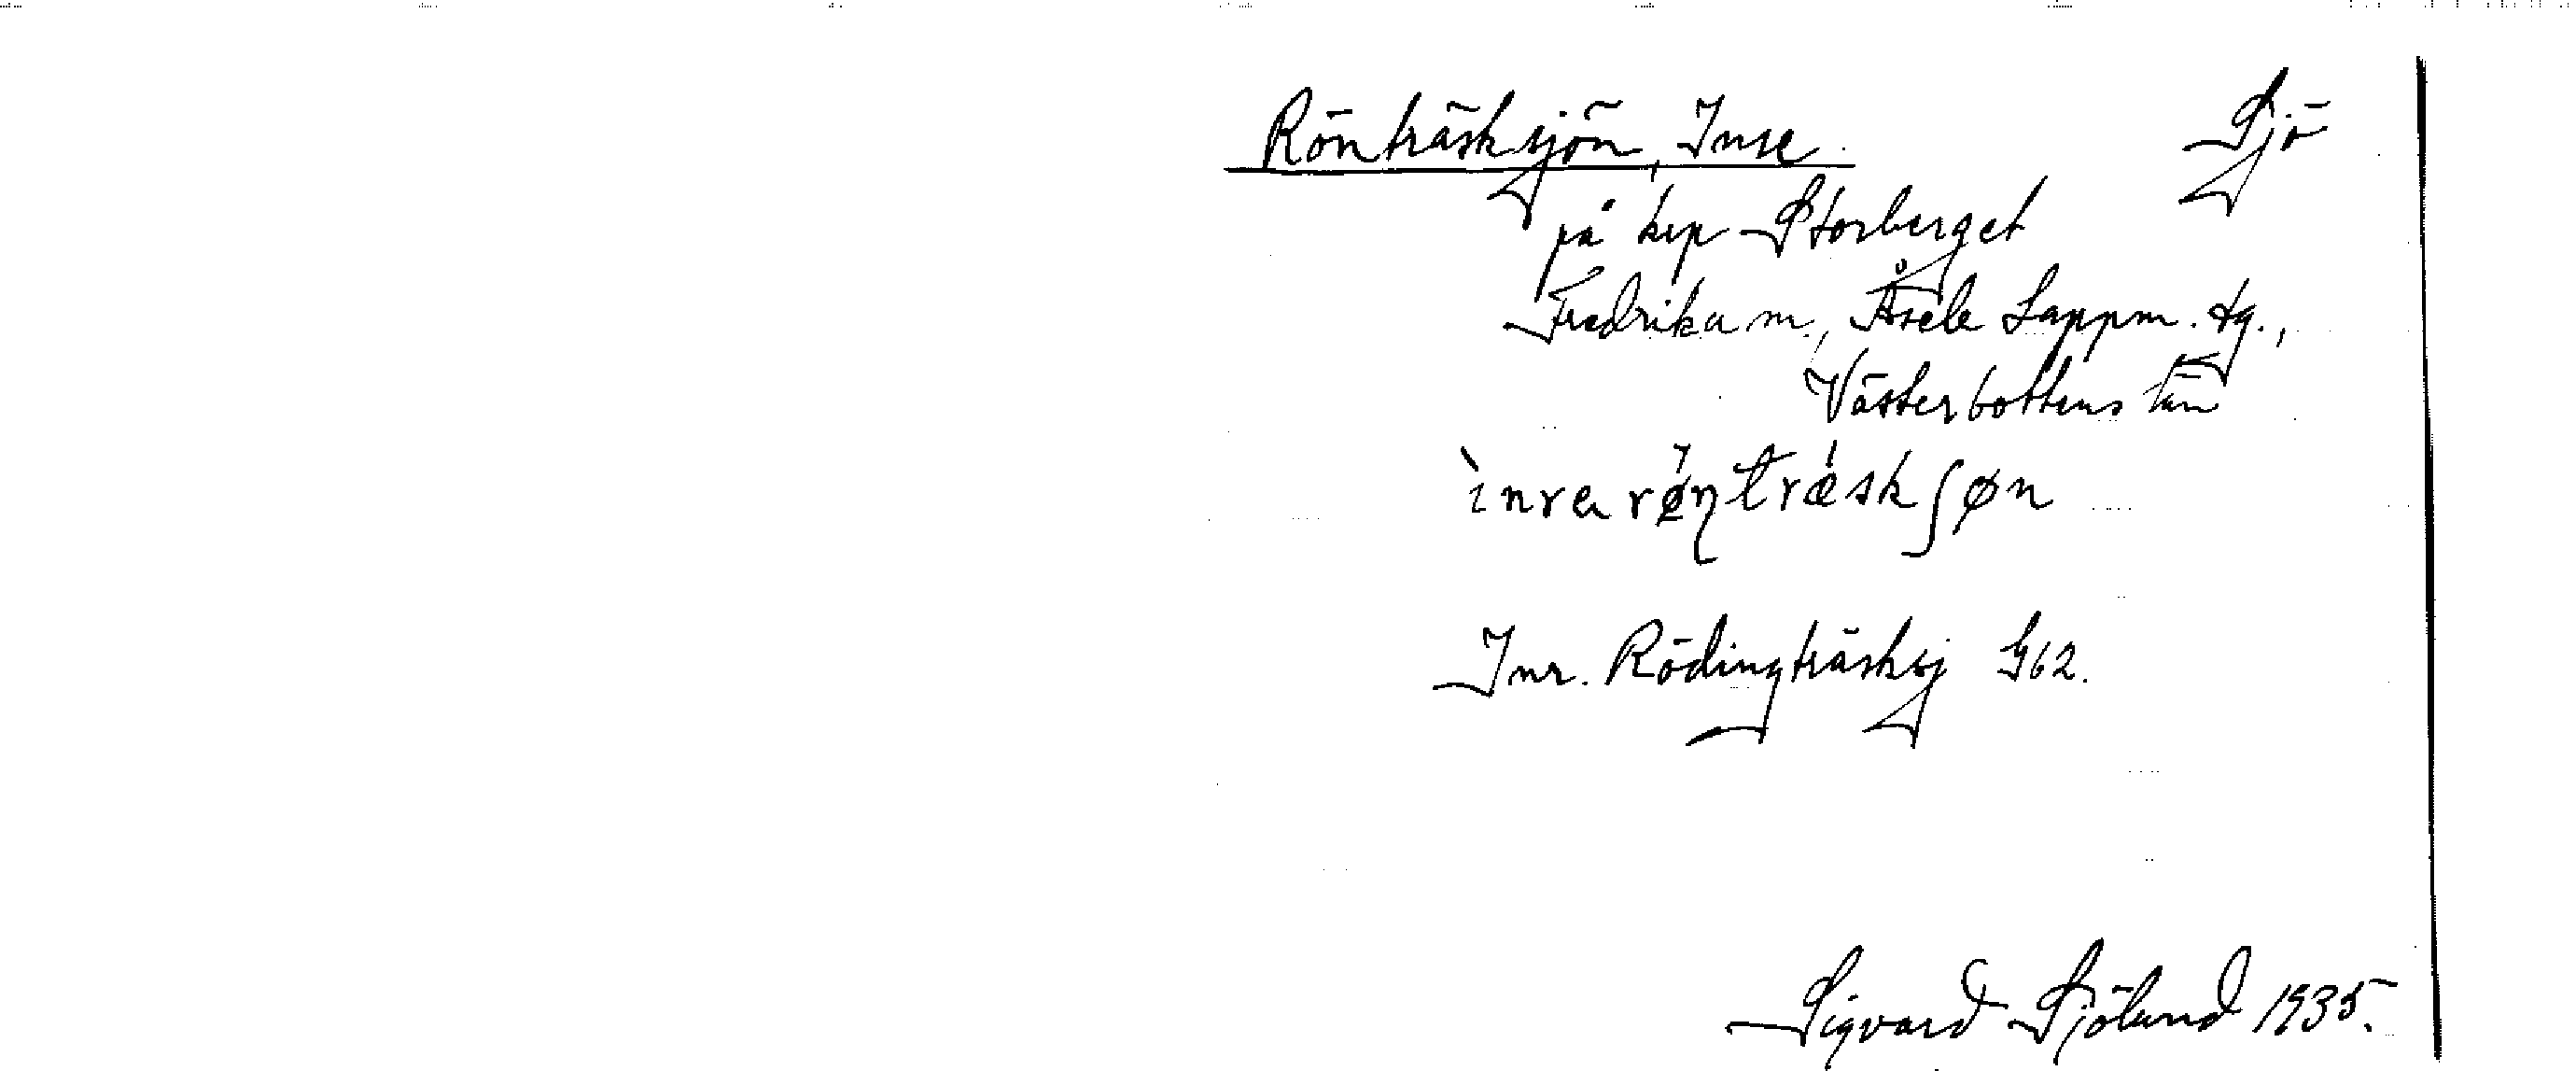 Rönträsksjön, Inre. Sjö
på krp Storberget
Fredrika sn., Åsele Lappm. tg.,
Västerbottens län
ìnra rǿŋtrǽskʃøn
Inr. Rödingträsksj G62.
Sigvard Sjölund 1935.